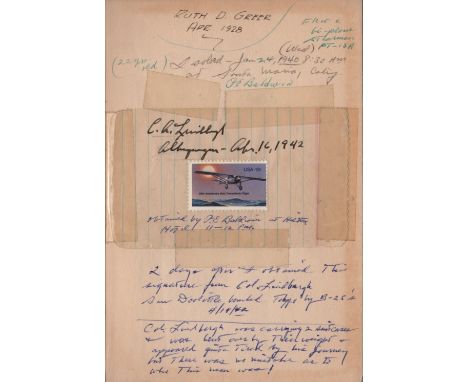 RUTH D. GREER
APR 1928
bi-plane
Stearman
PT-13A
(Wed)
(22 yrs old) I soloed - Jan 24, 1940 8:30 AM
at Santa Maria, Calif
P E Baldwin
C. A. Lindbergh
Albuquerque - Apr. 16, 1942
USA 13c
50th Anniversary Solo Transatlantic Flight
obtained by P.E Baldwin at Hilton
Hotel 11-12 P.M.
2 days after I obtained This
signature from Col. Lindbergh
Gen Doolittle bombed Tokyo by B-25's
4/18/42
Col. Lindbergh was carrying a suitcase
& was bent over by Their weight &
appeared quite Tired by his journey
but There was no mistake as to
who This man was!